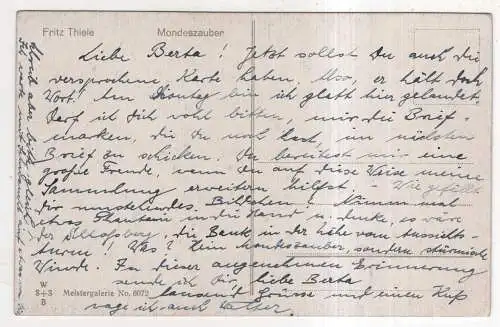 Fritz Thiele Mondeszauber
Liebe Berta! Jetzt sollst Du auch die
versprochene Karte haben. Also, er hält doch
Wort! Am Sonntag bin ich glatt hier gelandet.
Darf ich Dich wohl bitten, mir die Brief-
marken, die Du noch hast, im nächsten
Brief zu schicken. Du bereitest mir eine
große Freude, wenn Du auf diese Weise meine
Sammlung erweitern hilfst. – Wie gefällt
Dir umstehendes Bildchen? Nimm mal
etwas Phantasie in die Hand u. denke, es wäre
der Schloßberg, die Bank in der Nähe vom Aussichts-
turm! Was? Kein Mondeszauber, sondern stürmische
Winde. In dieser angenehmen Erinnerung
sende ich Dir, liebe Berta
tausend Grüße und einen Kuß
W
S+S
B
Meistergalerie No. 6072